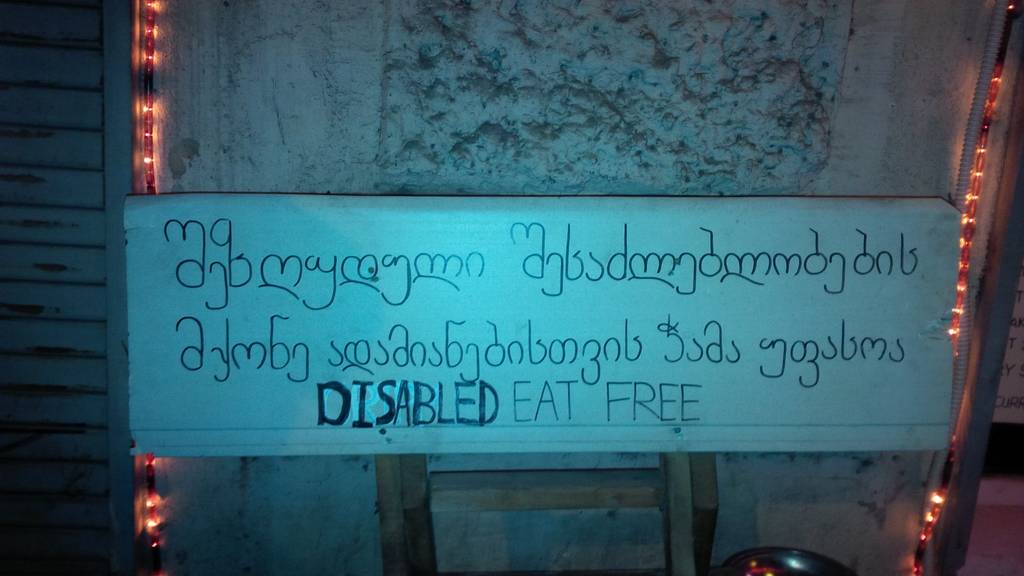 შეზღუდული შესაძლებლობების
მქონე ადამიანებისთვის ჭამა უფასოა
DISABLED EAT FREE